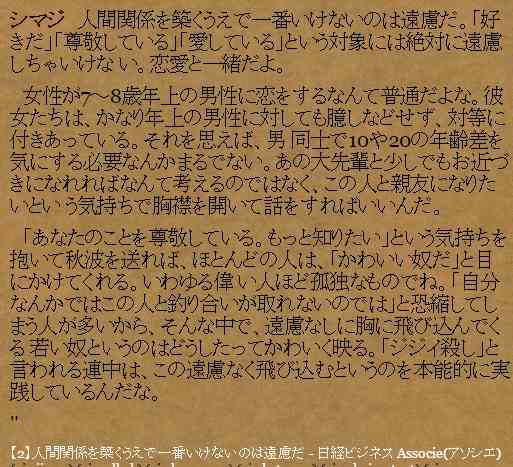 シマジ 人間関係を築くうえで一番いけないのは遠慮だ。「好
きだ」「尊敬している」「愛している」という対象には絶対に遠慮
しちゃいけない。恋愛と一緒だよ。
女性が7〜8歳年上の男性に恋をするなんて普通だよな。彼
女たちは、かなり年上の男性に対しても臆しなどせず、対等に
付きあっている。それを思えば、男同士で10や20の年齢差を
気にする必要なんかまるでない。あの大先輩と少しでもお近づ
きになれればなんて考えるのではなく、この人と親友になりた
いという気持ちで胸襟を開いて話をすればいいんだ。
「あなたのことを尊敬している。もっと知りたい」という気持ちを
抱いて秋波を送れば、ほとんどの人は、「かわいい奴だ」と目
にかけてくれる。いわゆる偉い人ほど孤独なものでね。「自分
なんかではこの人と釣り合いが取れないのでは」と恐縮してし
まう人が多いから、そんな中で、遠慮なしに胸に飛び込んでく
る若い奴というのはどうしたってかわいく映る。「ジジイ殺し」と
言われる連中は、この遠慮なく飛び込むというのを本能的に実
践しているんだな。
"
【2】人間関係を築くうえで一番いけないのは遠慮だ - 日経ビジネス Associe(アソシエ)